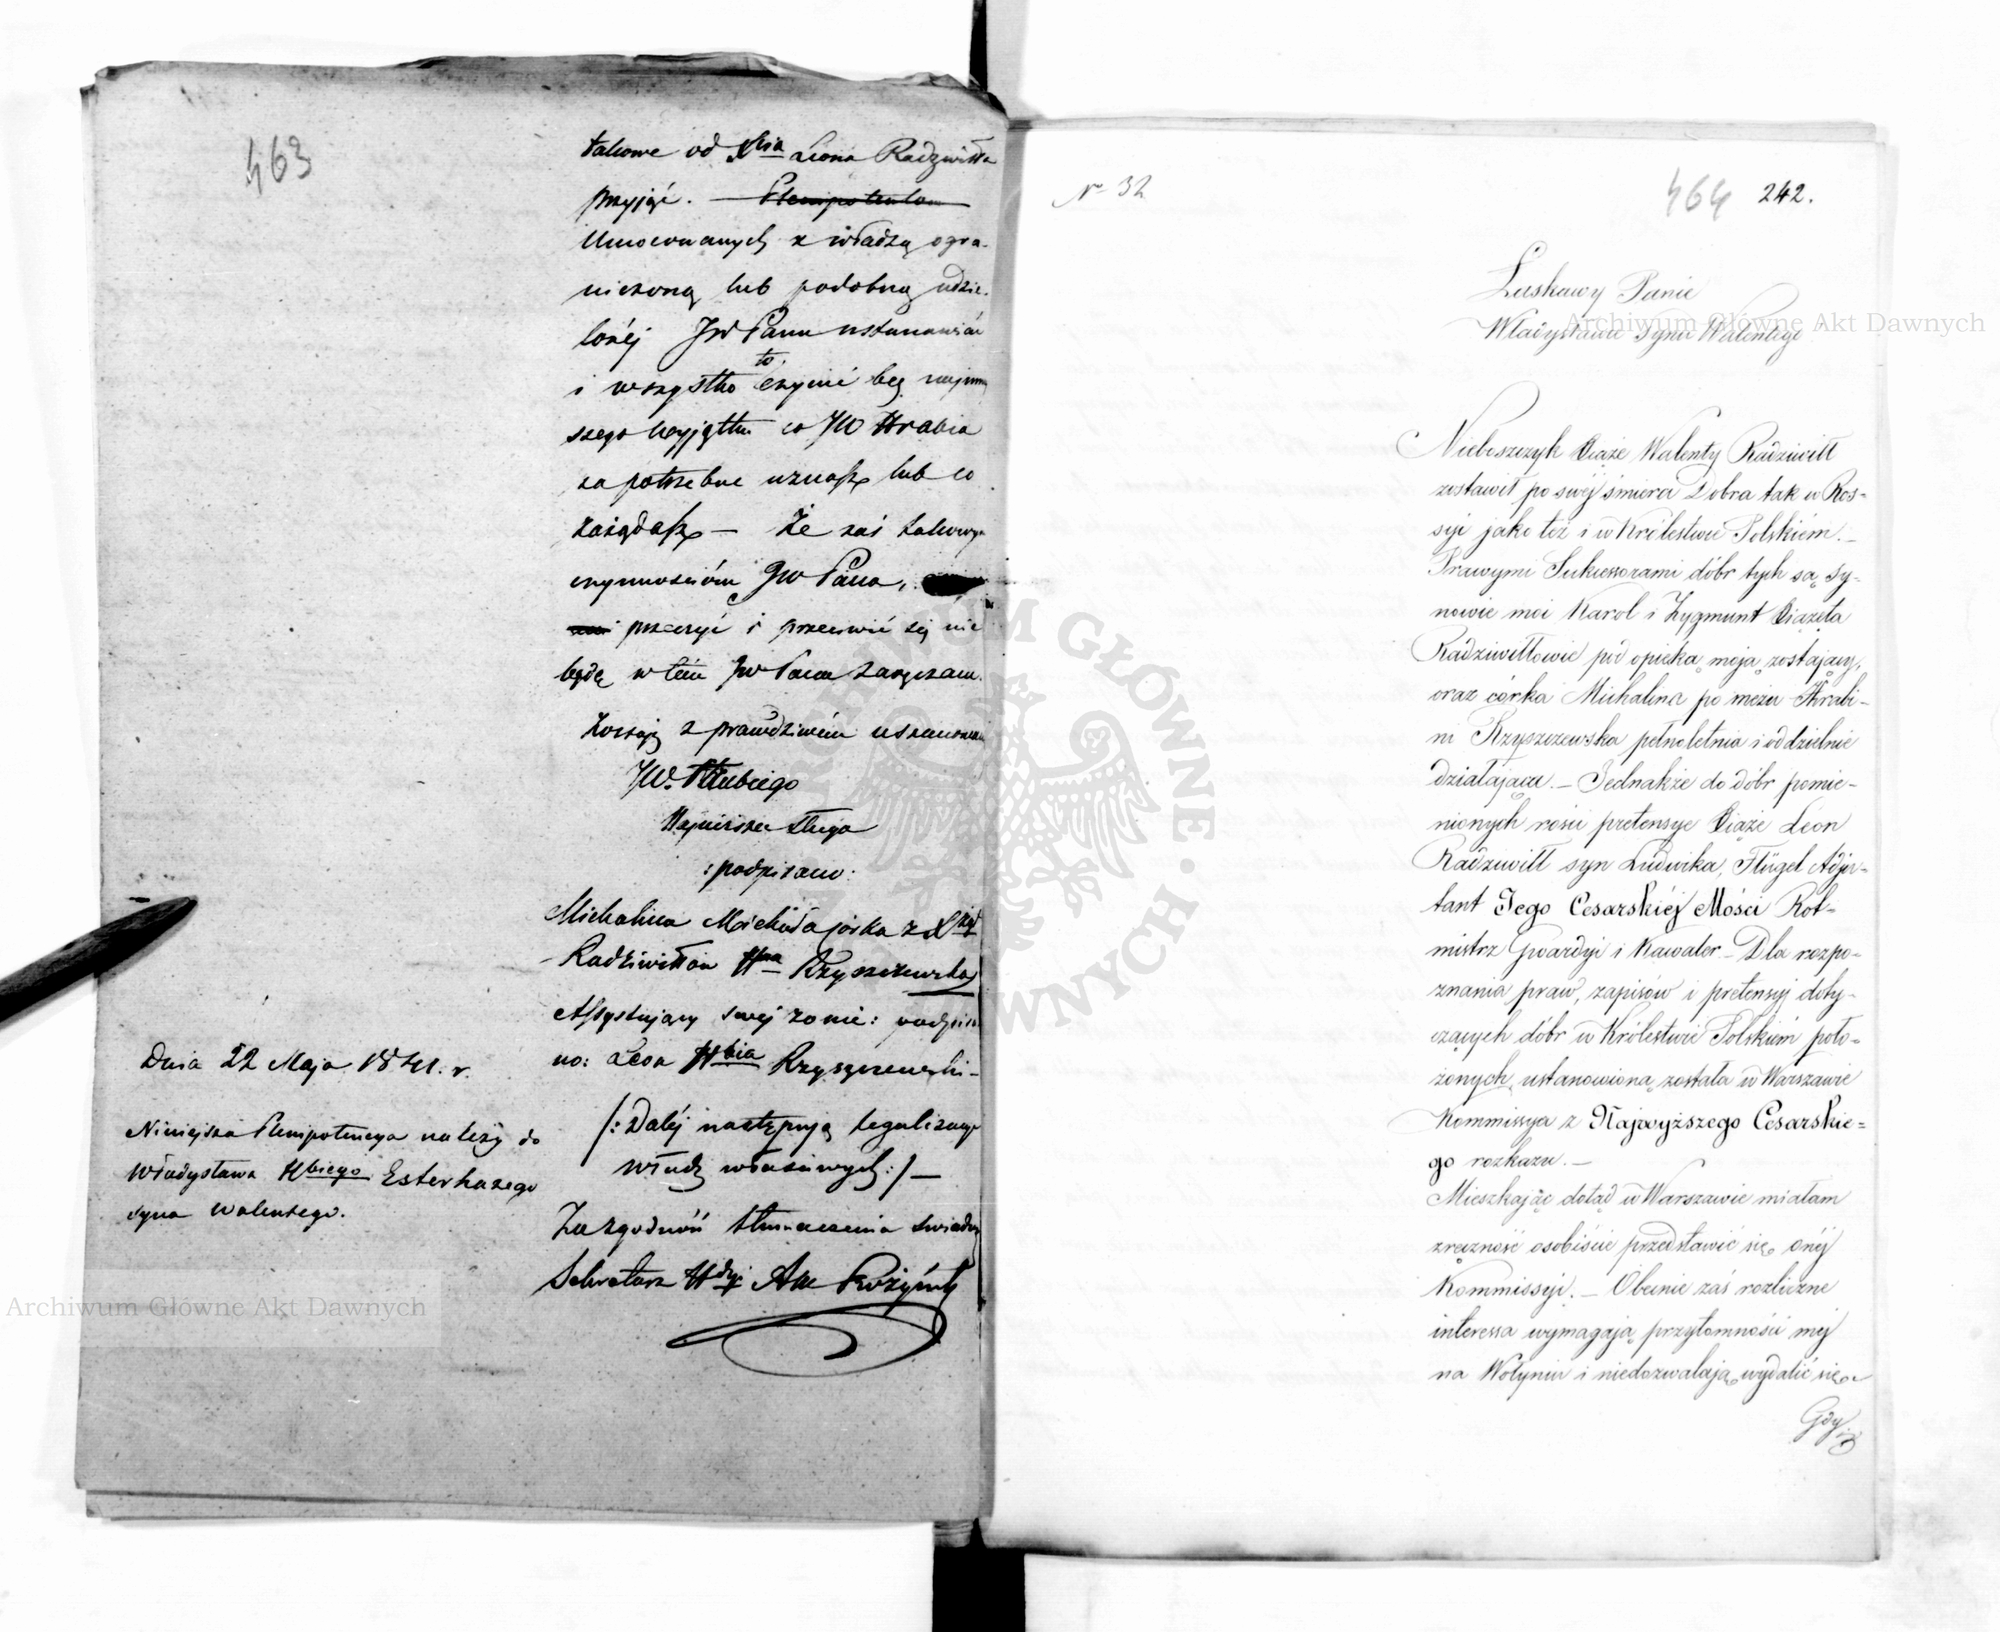 463
takowe od Xcia Leona Radziwiłła
przyjąć. — Plenipotentom
Umocowanych z władzą ogra-
niczoną lub podobną udzie-
lonéj JW Panu ustanawiać
to.
i wszystko czynić bez najmniej
szego wyjątku co JW Hrabia
za potrzebne uznasz lub co
zażądasz — Że zaś takowym
czynnościom JW Pana,
przeczyć i przeciwić się nie
będę w tém JW Pana zaręczam.
Zostaję z prawdziwém uszanowaniem
JW. Hrabiego
Najniższa sługa
:podpisano:
Michalina z Xżąt
Radziwiłłów Hna Rzyszczewska
Assystujący swéj żonie: podpisa
no: Leon Hbia Rzyszczewski —
/: Daléj następują legalizacye
władz właściwych :/ —
Za zgodność tłumaczenia świadczy
Sekretarz
Dnia 22 Maja 1841. r.
Niniejsza Plenipotencya należy do
Władysława Hbiego Esterhazego
syna Walentego.
Archiwum Główne Akt Dawnych
ARCHIWUM GŁÓWNE AKT DAWNYCH
No 32
464 242.
Łaskawy Panie
Władysławie synu Walentego
Archiwum Główne Akt Dawnych
Nieboszczyk Xiąże Walenty Radziwiłł
zostawił po swéj śmierci Dobra tak w Ros-
syi jako też i w Królestwie Polskiém. —
Prawymi Sukcessorami dóbr tych są sy-
nowie moi Karol i Zygmunt Xiążęta
Radziwiłłowie pod opieką moją zostający,
oraz córka Michalina po mężu Hrabi-
ni Rzyszczewska pełnoletnia i oddzielnie
działająca. — Jednakże do dóbr pomie-
nionych rości pretensye Xiąże Leon
Radziwiłł syn Ludwika, Flügel Adju-
tant Jego Cesarskiéj Mości Rot-
mistrz Gwardyi i Kawaler — Dla rozpo-
znania praw, zapisów i pretensyj doty-
czących dóbr w Królestwie Polskiém poło-
żonych, ustanowioną została w Warszawie
Kommissya z Najwyższego Cesarskie-
go rozkazu. —
Mieszkając dotąd w Warszawie miałam
zręczność osobiście przedstawić się onéj
Kommissyi. — Obecnie zaś rozliczne
interessa wymagają przytomności méj
na Wołyniu i niedozwalają wydalić się
Gdy